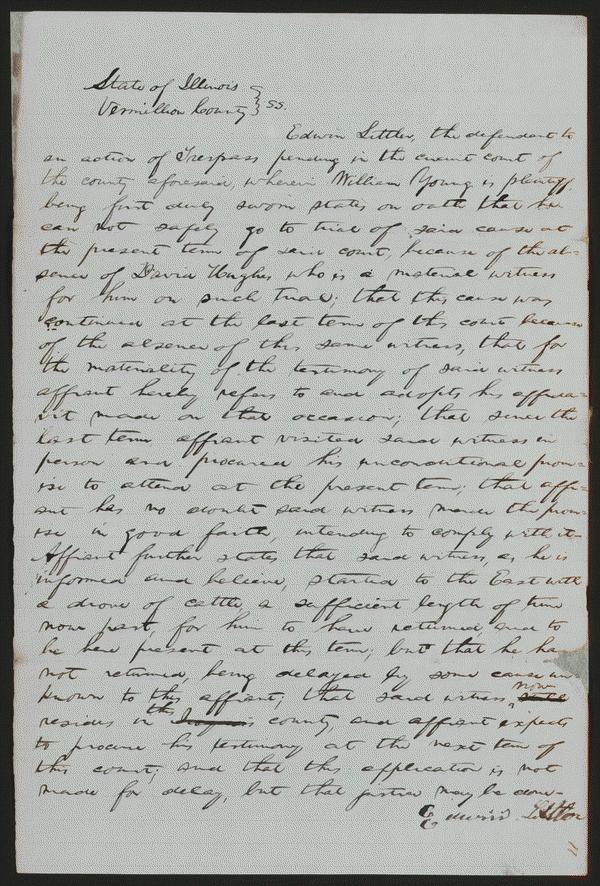 State of Illinois }
Vermillion County } SS.
Edwin Littler, the defendant to
an action of Trespass pending in the circuit court of
the county aforesaid, wherein William Young is plaintiff,
being first duly sworn states on oath that he
can not safely go to trial of said cause at
the present term of said court, because of the ab-
sence of David Hughes who is a material witness
for him on such trial; that this cause was
continued at the last term of this court because
of the absence of this same witness, that for
the materiality of the testimony of said witness
affiant hereby refers to and adopts his affida-
vit made on that occasion; that since the
last term affiant visited said witness in
person and procured his unconditional prom-
ise to attend at the present term; that affi-
ant has no doubt said witness made the prom-
ise in good faith, intending to comply with it-
Affiant further states that said witness, as he is
informed and believe, started to the East with
a drove of cattle a sufficient length of time
now past, for him to have returned, and to
be here present at this term; but that he has
not returned, being delayed by some cause un
known to this affiant; that said witness, now
resides in this county, and affiant expects
to procure his testimony at the next term of
this court; and that this application is not
made for delay, but that justice may be done-
Edwin Littler
11